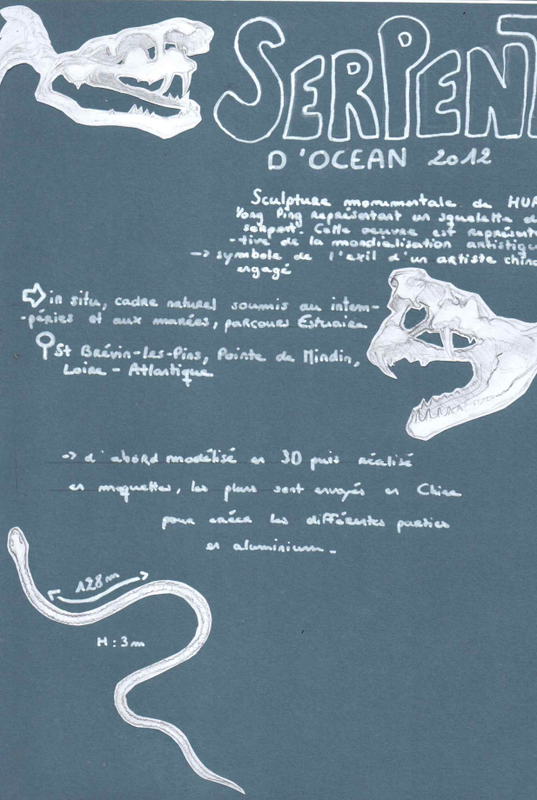 SERPENT
D'OCEAN 2012
Sculpture monumentale de HUA
Yong Ping représentant un squelette d
serpent. Cette oeuvre est représenta
-tive de la mondialisation artistique
-> symbole de l'exil d'un artiste chino
engagé
in situ, cadre naturel soumis au intem-
-péries et aux marées, parcours Estuaire
St Brévin-les-Pins, Pointe de Mindin,
Loire - Atlantique
-> d'abord modélisé en 3D puis réalisé
en maquettes, les plans sont envoyés en Chine
pour créer les différentes parties
en aluminium.
128m
H : 3m